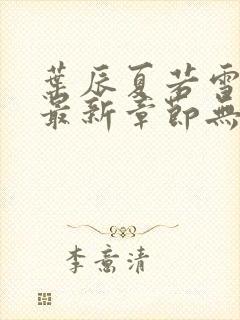 葉辰夏若雪
最新章節無
李意清